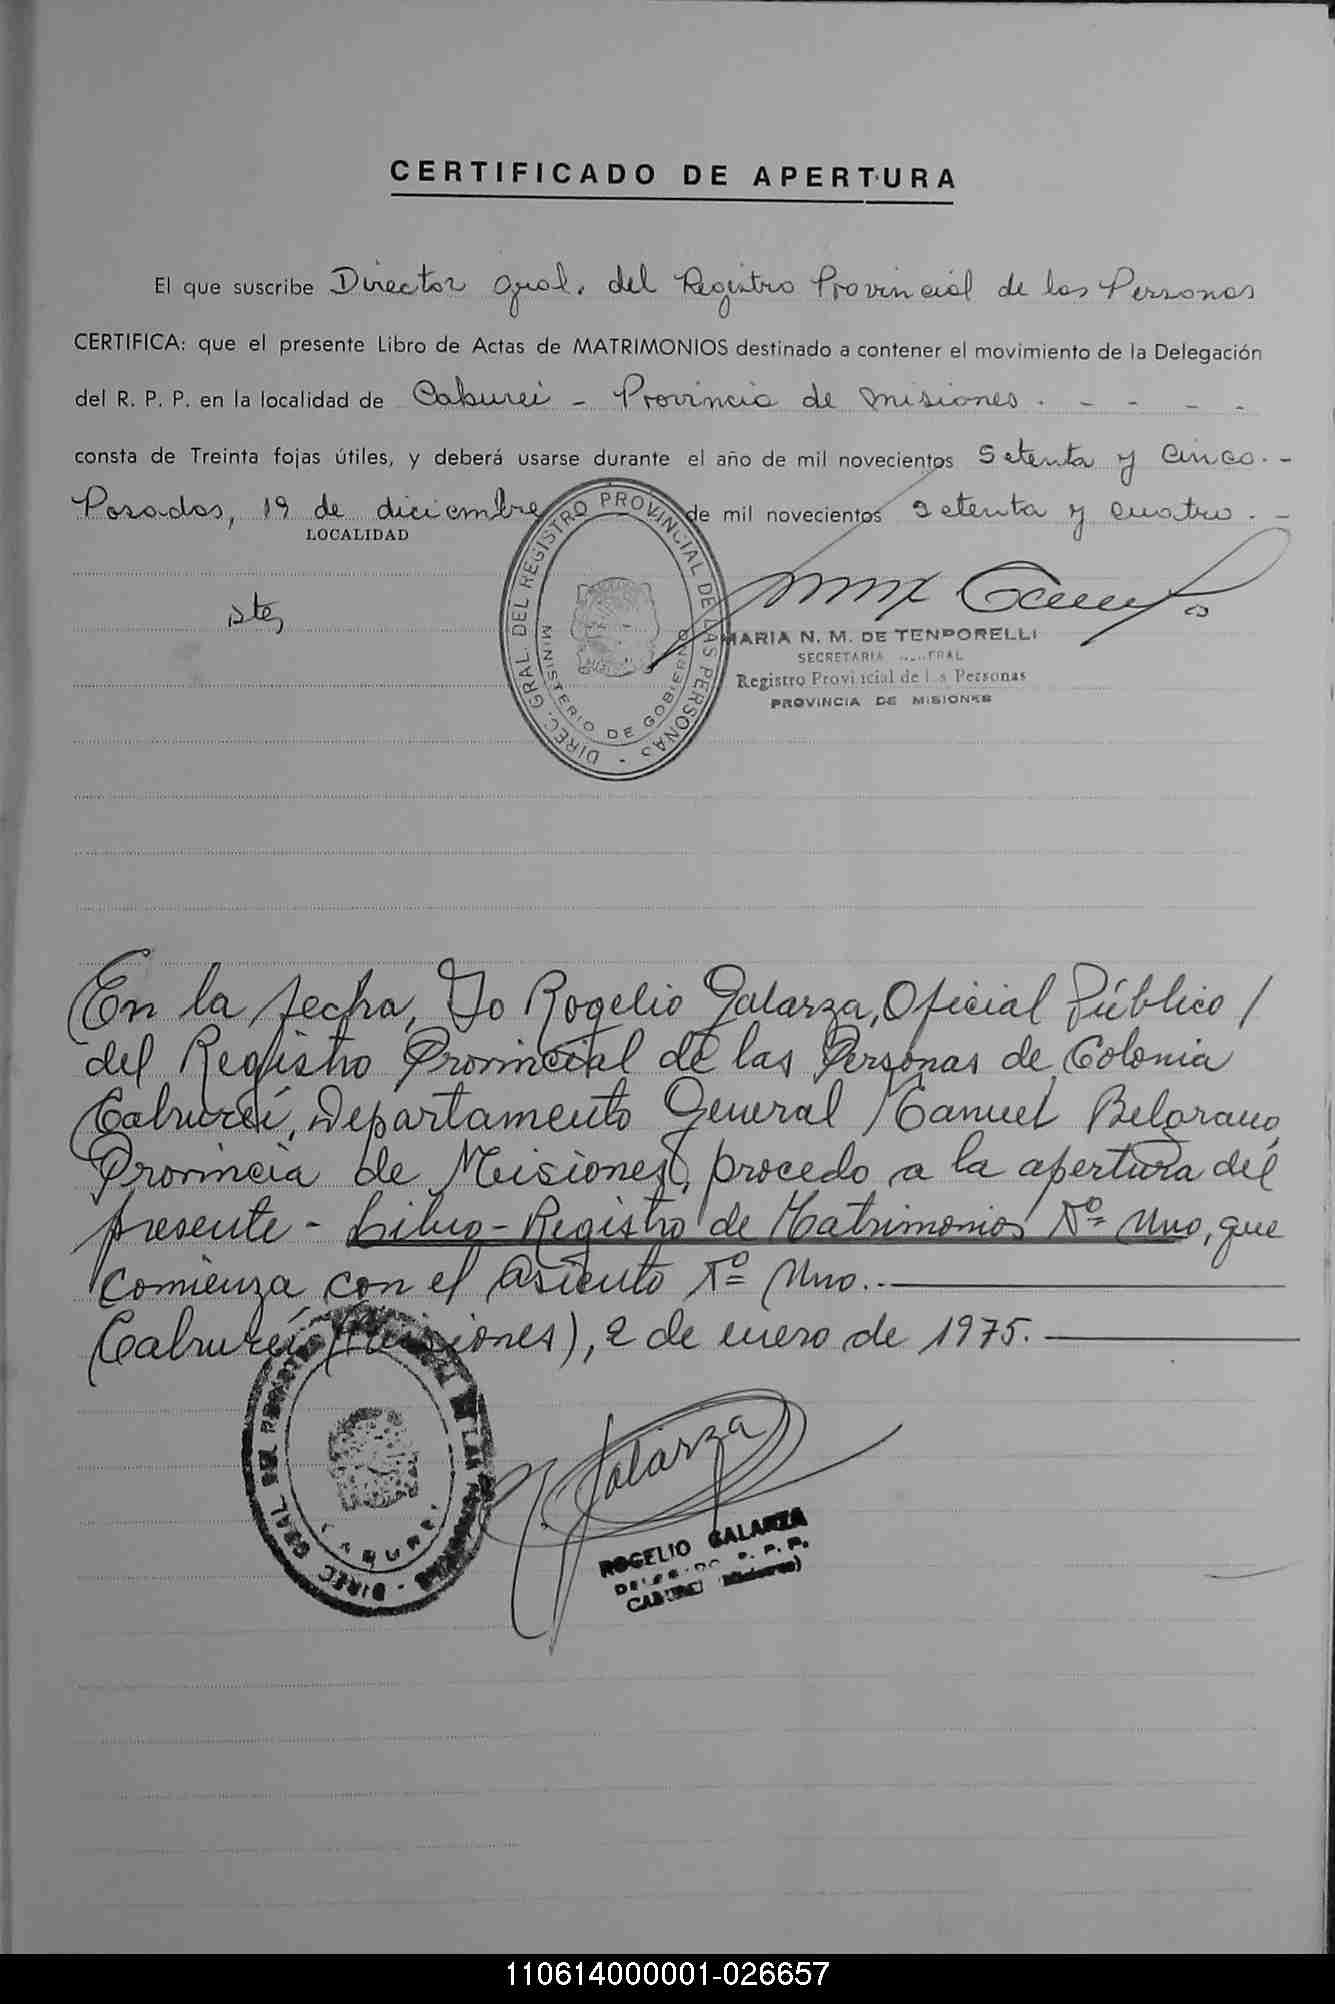 CERTIFICADO DE APERTURA
El que suscribe Director gral. del Registro Provincial de las Personas
CERTIFICA: que el presente Libro de Actas de MATRIMONIOS destinado a contener el movimiento de la Delegación
del R. P. P. en la localidad de Caburei - Provincia de Misiones . - - - -
consta de Treinta fojas útiles, y deberá usarse durante el año de mil novecientos Setenta y Cinco. -
Posadas, 19 de diciembre de mil novecientos Setenta y cuatro. -
LOCALIDAD
DIREC. GRAL. DEL REGISTRO PROVINCIAL DE LAS PERSONAS
MINISTERIO DE GOBIERNO
MARIA N. M. DE TENPORELLI
SECRETARIA GENERAL
Registro Provincial de las Personas
PROVINCIA DE MISIONES
En la fecha, Yo Rogelio Galarza, Oficial Público /
del Registro Provincial de las Personas de Colonia
Cabureí, Departamento General Manuel Belgrano,
Provincia de Misiones, procedo a la apertura del
presente - Libro-Registro de Matrimonios Nº Uno, que
comienza con el Asiento Nº Uno.-
Cabureí (Misiones), 2 de enero de 1975.
DIREC. GRAL. DEL LAS
CABUREI
Galarza
ROGELIO GALARZA
DELEGADO R. P. P.
CABUREI (Misiones)
110614000001-026657